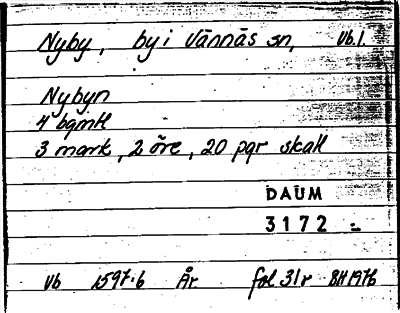 Nyby, by i Vännäs sn, Vb.l.
Nybyn
4 bgmtl
3 mark, 2 öre, 20 pgr skatt
DAUM
3172 -
Vb 1597:6 År fol 31r BH 1976